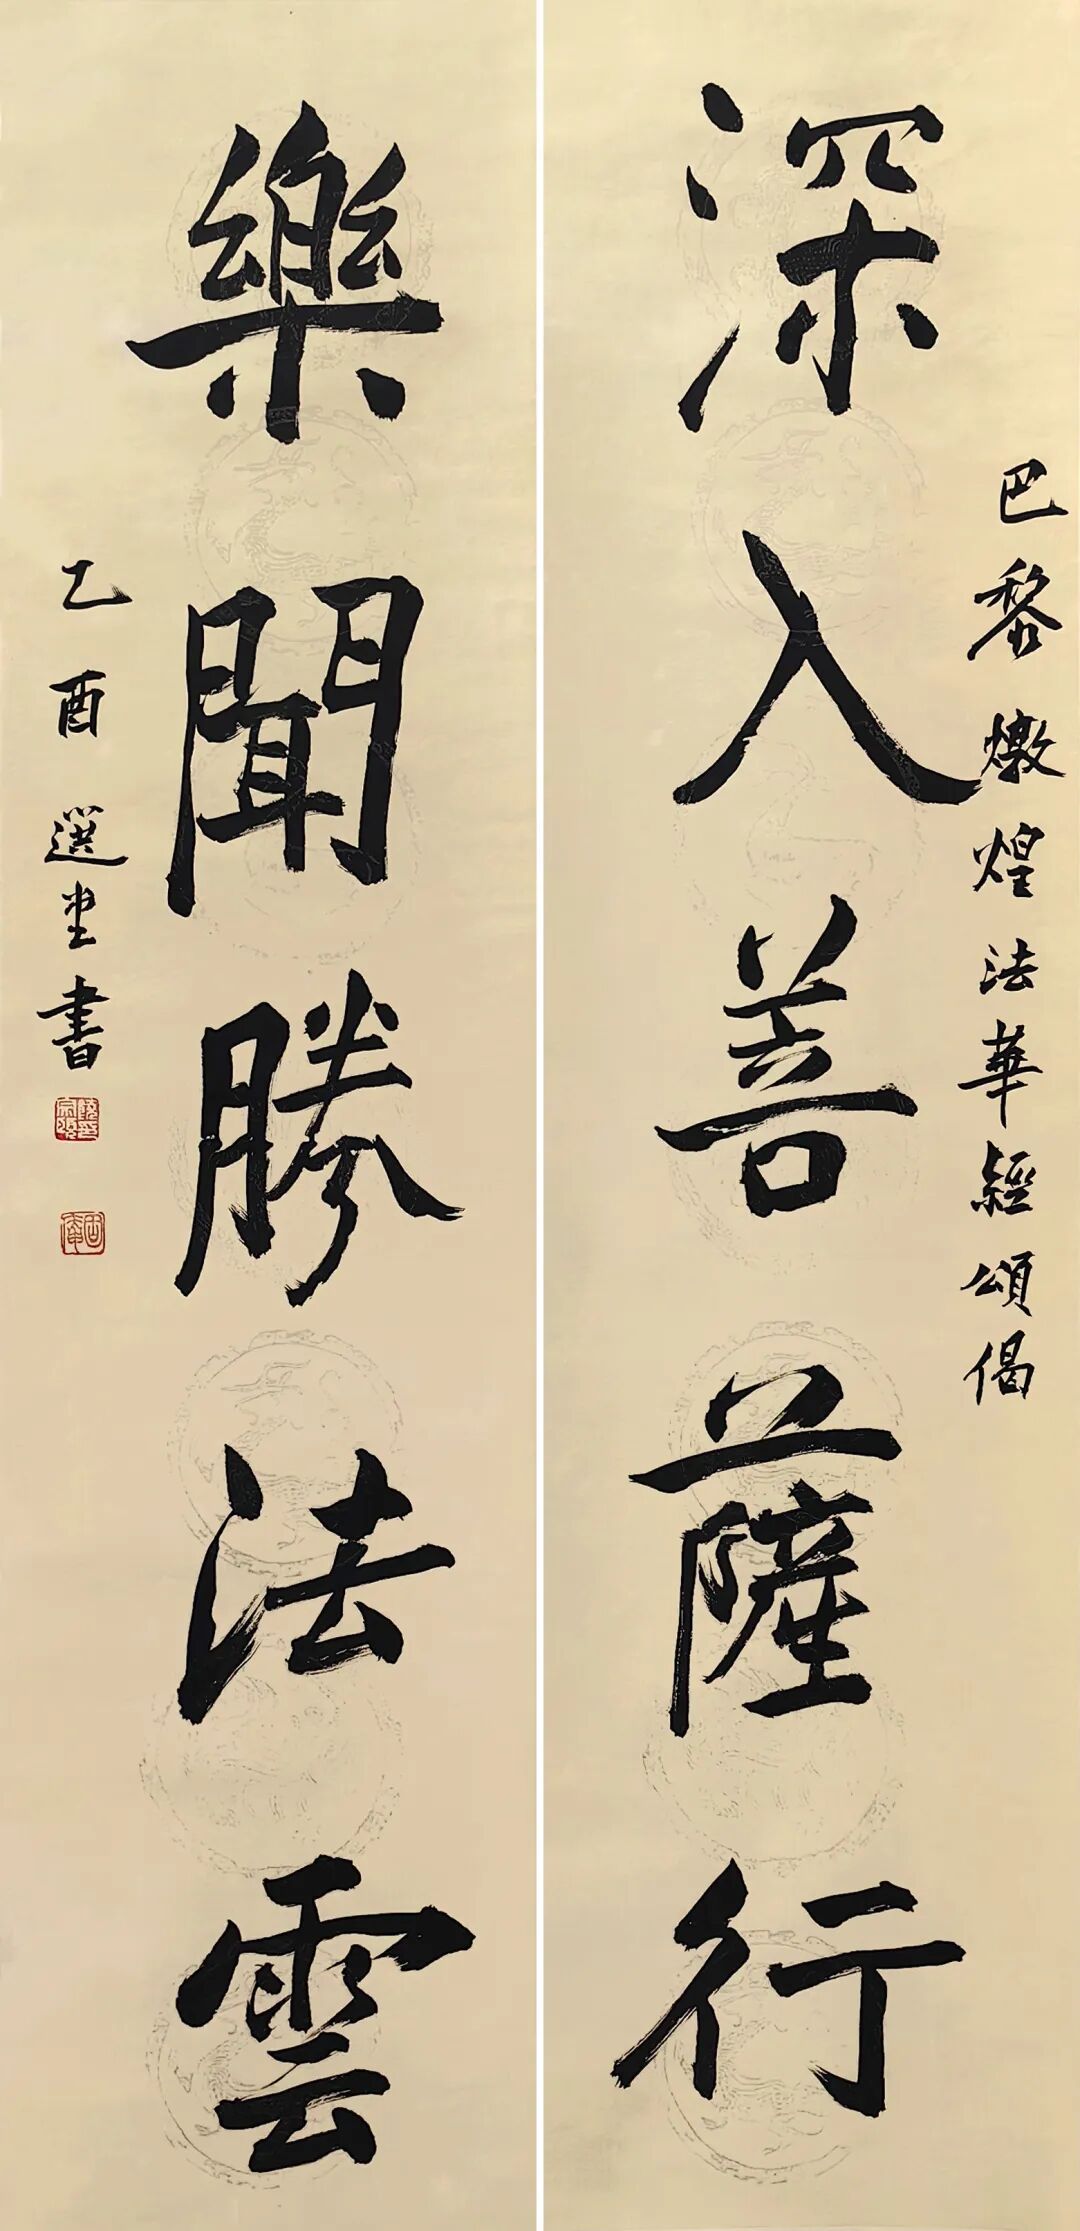 巴黎燉煌法華經頌偈
深入菩薩行
樂聞勝法雲
乙酉選堂書
饒宗頤印
固庵